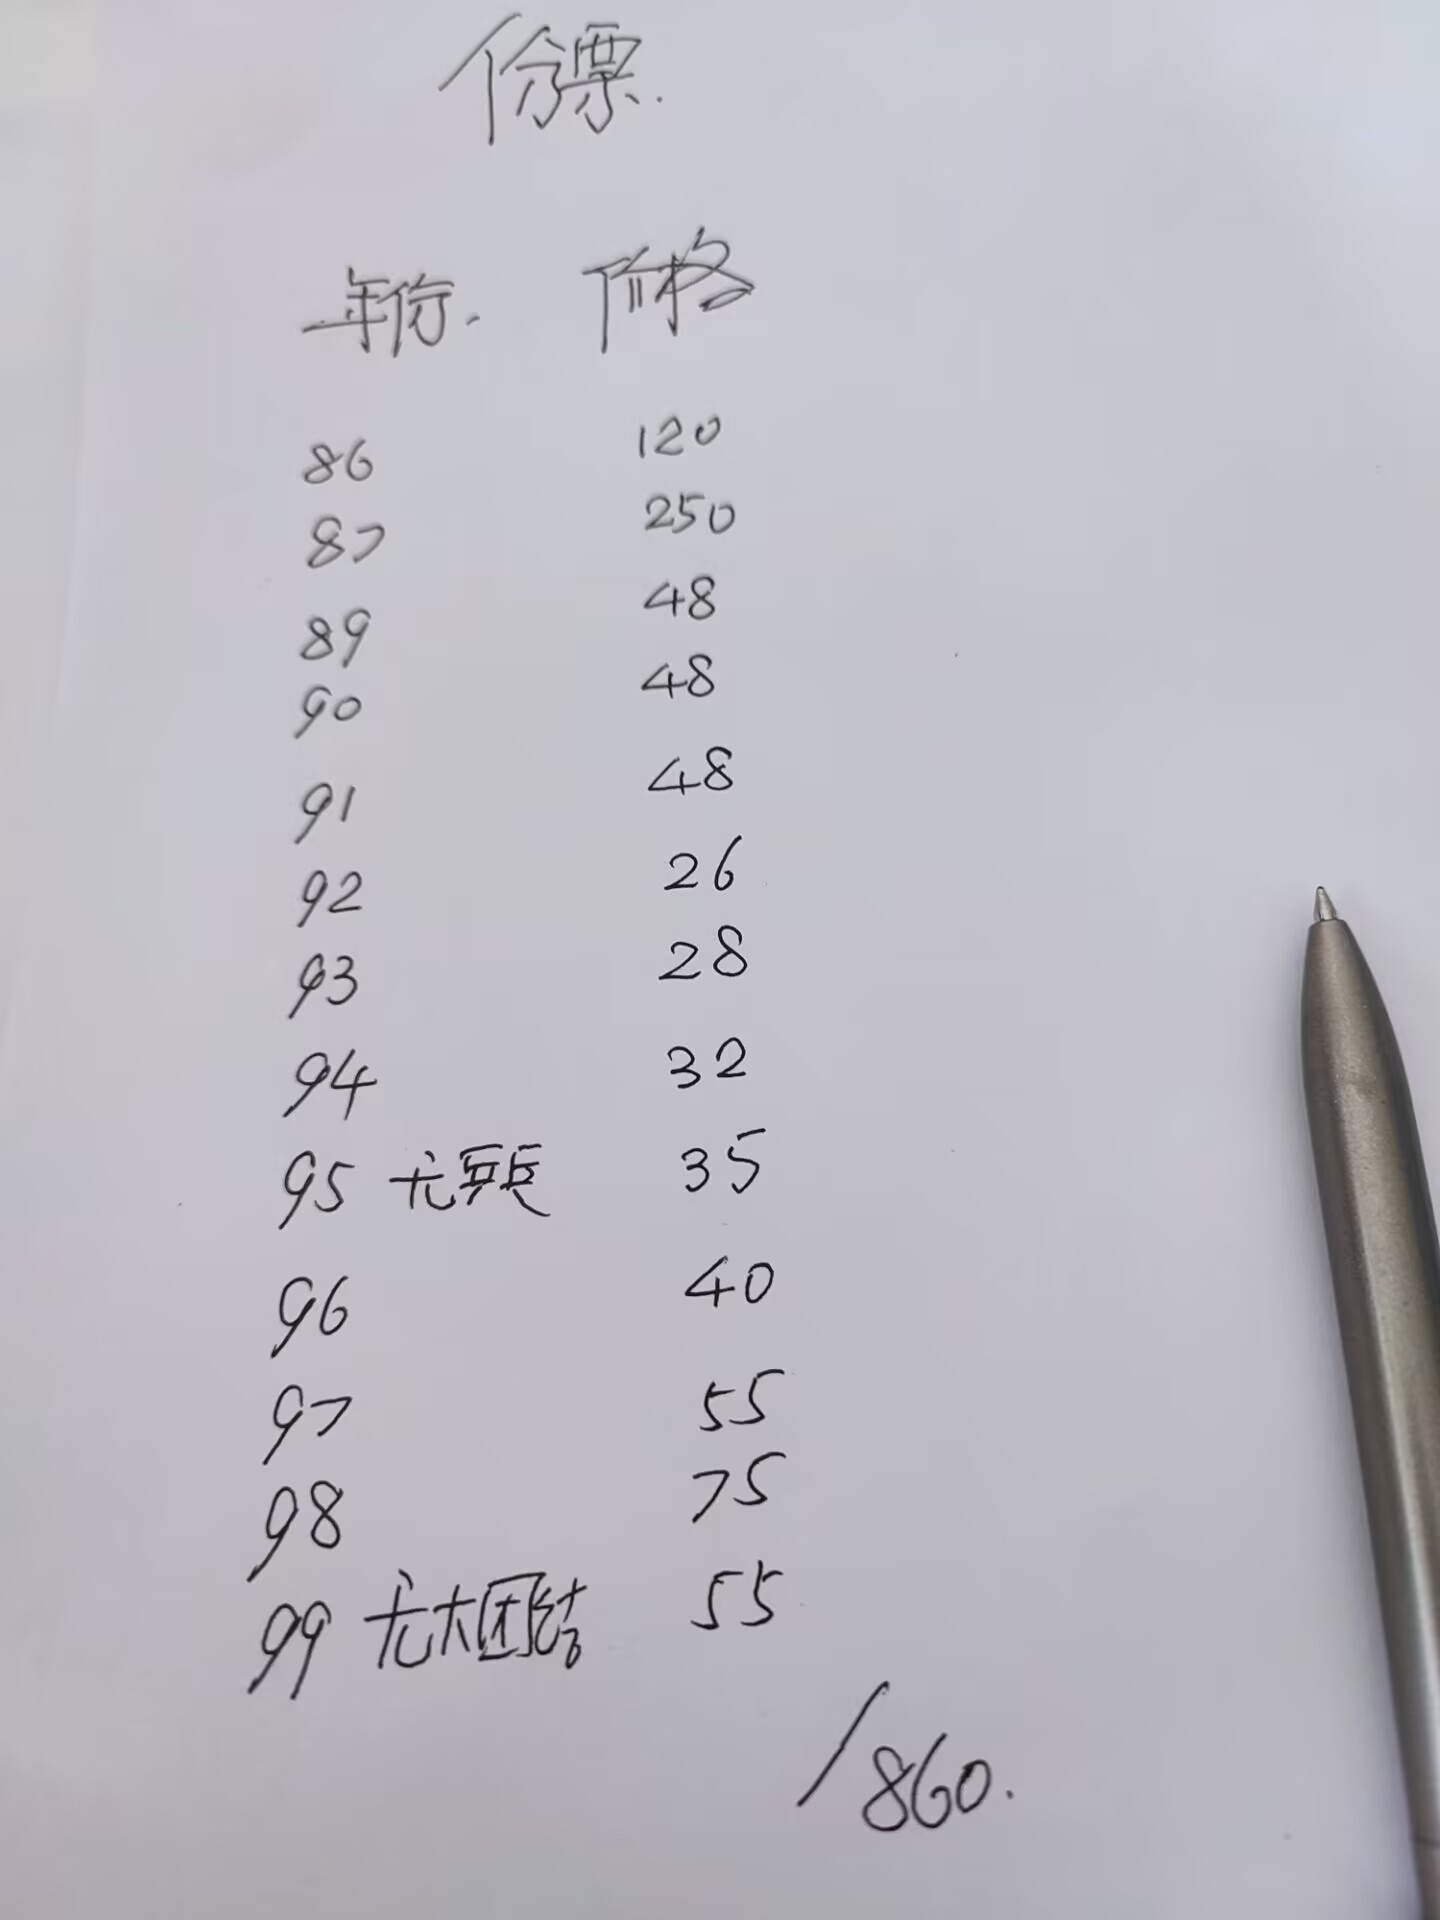 份票.
年份. 价格
86 120
87 250
89 48
90 48
91 48
92 26
93 28
94 32
95 无乒乓 35
96 40
97 55
98 75
99 无大团结 55
/860.